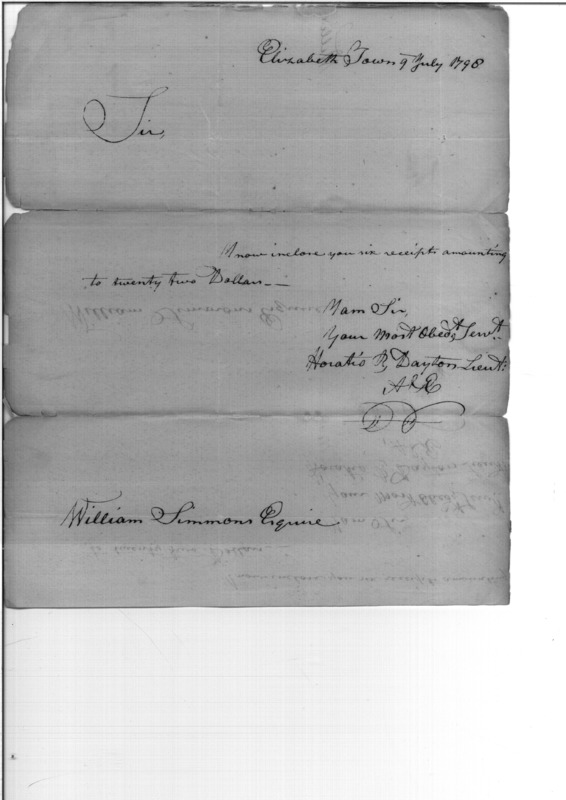 Elizabeth Town 9 July 1798
Sir,
I now inclose you six receipts amounting
to twenty two Dollars
I am Sir,
Your Most Obedt Servt
Horatio R Dayton Lieut:
A & E
William Simmons Esquire